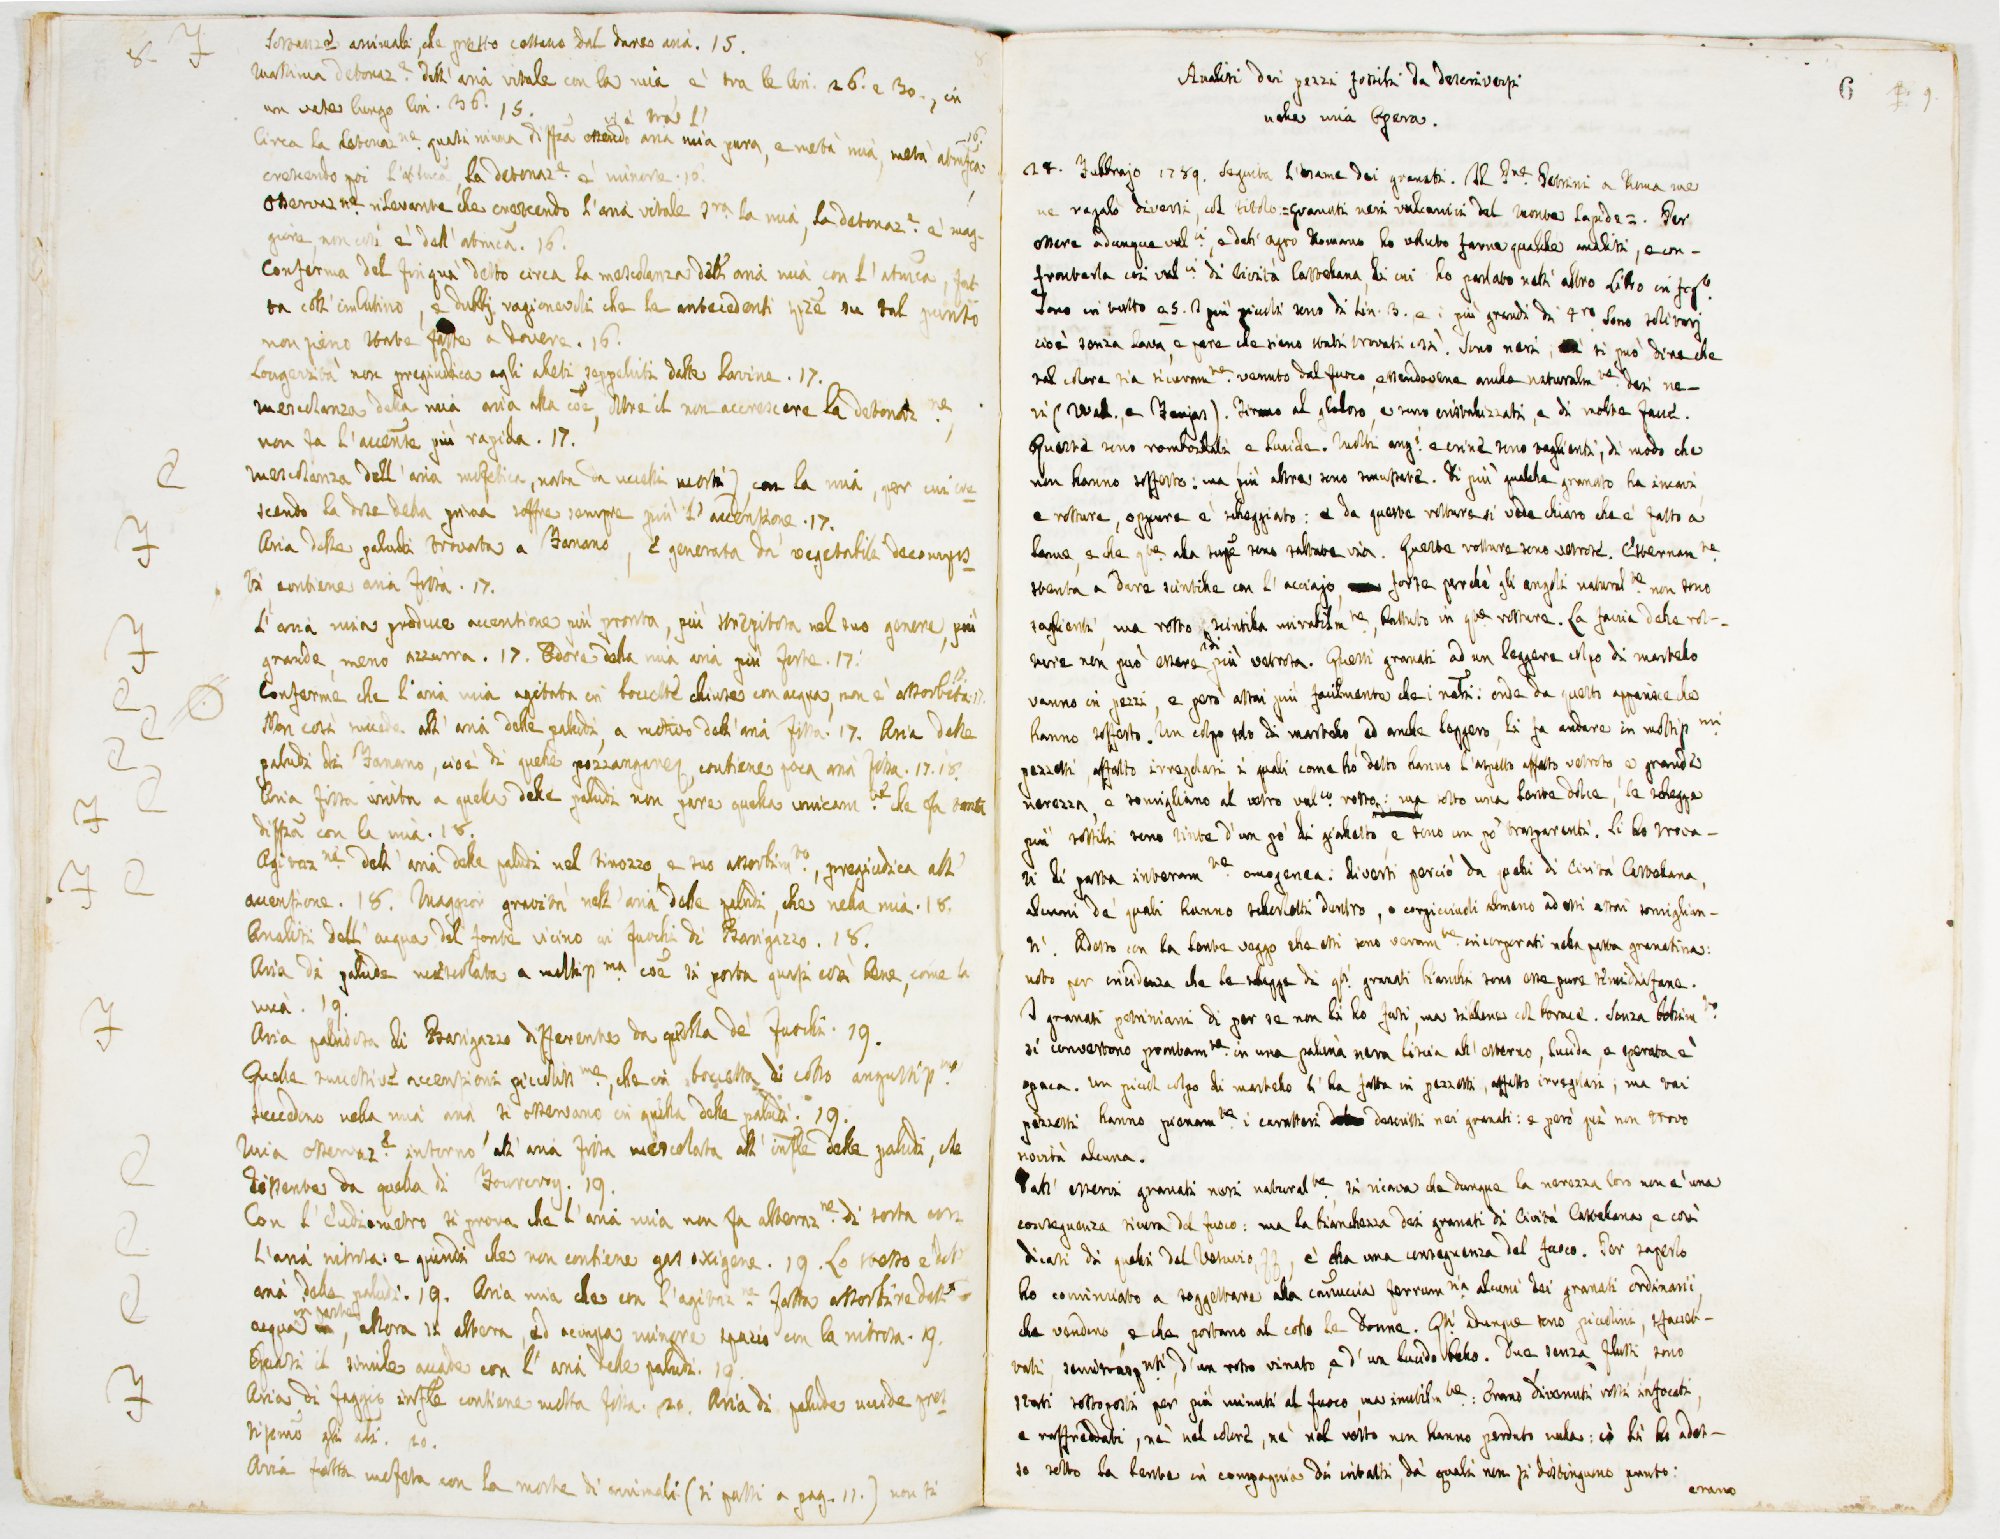 8. 7
Sostanze animali, che presto cessano dal dare aria. 15.
Massima detonaz.e dell' aria vitale con la mia è tra le lin. 26. e 30., in
un vetro lungo lin. 36. 15.
Circa la detonaz.ne quasi niuna diffza vi è tra l' aria mia pura, e metà mia, metà atmfca. 16.
crescendo poi l'atmca, la detonaz.e è minore. 16.
Osservaz.ne rilevante che crescendo l'aria vitale sra la mia, la detonaz.e è mag-
giore, non così è dell' atmca. 16.
Conferma del fin quà detto circa la mescolanza dell' aria mia con l' atmca, fat-
ta coll' intestino, e dubbj ragionevoli che le antecedenti spze su tal punto
non sieno state fatte a dovere. 16.
non pregiudica agli abeti seppelliti dalle lavine. 17.
Mescolanza della mia aria alla coe, oltre il non accrescere la detonaz.ne,
non fa l'accente più rapida. 17.
Mescolanza dell' aria mofetica, nata da uccelli morti, con la mia, per cui cre
scendo la dose della prima soffre sempre più l' accensione. 17.
Aria delle paludi trovata a Fanano, è generata da' vegetabili decompos
ti contiene aria fissa. 17.
L' aria mia produce accensione più pronta, più strepitosa nel suo genere, più
grande, meno azzurra. 17. Odore della mia aria più forte. 17.
Conferme che l' aria mia agitata in boccette chiuse con acqua, non è assorbita. 17.
Non così succede all' aria delle paludi, a motivo dell' aria fissa. 17. Aria delle
paludi di Fanano, cioè di quelle pozzanghere, contiene poca aria fissa. 17. 18.
Aria fissa unita a quella delle paludi non pare quella unicam.te che fa tanta
diffza con la mia. 18.
Agitaz.ne dell' aria delle paludi nel tinozzo, e suo assorbim.to, pregiudica all'
accensione. 18. Maggior gravità nell' aria delle paludi, che nella mia. 18.
Analisi dell' acqua del fonte vicino ai fuochi di Barigazzo. 18.
Aria di palude mescolata a moltiss.ma coe si porta quasi così bene, come la
mia. 19.
Aria paludosa di Barigazzo differente da quella de' fuochi. 19.
Quelle successive accensioni piccoliss.me, che in boccetta di collo angustiss.mo
succedono nella mia aria si osservano in quella delle paludi. 19.
Mia osservaz.e intorno all' aria fissa mescolata all' infle delle paludi, che
dissente da quella di Fourcroy. 19.
Con l' eudiometro si prova che l' aria mia non fa alteraz.ne di sorta con
l' aria nitrosa: e quindi che non contiene gas oxigene. 19. Lo stesso è dell'
aria delle paludi. 19. Aria mia che con l'agitaz.ne fassi assorbire dall'
acqua in parte, allora si altera, ed occupa minore spazio con la nitrosa. 19.
Quasi il simile accade con l' aria delle paludi. 19.
Aria di faggio infle contiene molta fissa. 20. Aria di palude uccide pres
tissmo gli ali. 20.
Aria fatta mofeta con la morte di animali (si passi a pag. 11.) non si
6 9.
Analisi dei pezzi fossili da descriversi
nella mia Opera.
28. Febbrajo 1789. Seguita l'esame dei granati. Il Petrini a Roma me
ne regalò diversi, col titolo = Granati neri vulcanici del monte Lapide =. Per
essere adunque vul.ci, e dell' agro Romano ho voluto farne qualche analisi, e con-
frontarla coi vul.ci di Cività Castellana, di cui ho parlato nell' altro Libro in fogl.o
Sono in tutto 25. I più piccoli sono di Lin. 3. e i più grandi di 4. Sono solitarj
cioè senza lava, e pare che sieno stati trovati così. Sono neri, si può dire che
tal colore sia sicuram.te venuto dal fuoco, essendovene anche naturalm.te dei ne-
ri (Wall., e Faujas). Tirano al globoso, e sono cristallizzati, e di molte facce.
Queste sono romboidali e lucide. Molti ang.i e crine sono taglienti, di modo che
non hanno sofferto: ma più altre sono smussate. Di più qualche granato ha incavi,
e rotture, oppure è scheggiato: e da queste rotture si vede chiaro che è fatto a
lame, e che q.te alla supe sono saltate via. Queste rotture sono vetrose. Esternam.te
stenta a dare scintille con l' acciajo, forse perchè gli angoli natural.te non sono
taglienti, ma rotto scintilla mirabilm.te, battuto in q.te rotture. La faccia delle rot-
ture non può essere di più vetrosa. Questi granati ad un leggere colpo di martello
vanno in pezzi, e però assai più facilmente che i nosri: onde da questo apparisce che
hanno sofferto. Un colpo solo di martello ed anche leggero, li fa andare in moltiss.mi
pezzetti, affatto irregolari i quali come hò detto hanno l'aspetto affatto vetroso e grande
nerezza, e somigliano al vetro vul.co rosso: ma sotto una lente dolce, le schegge
più sottili sono tinte d' un pò di gialletto e sono un pò trasparenti. Li ho trova-
ti di pasta interam.te omogenea: diversi perciò da quelli di Cività Castellana,
alcuni de' quali hanno scherletti dentro, o corpicciuoli almeno ad essi assai somiglian-
ti. Adesso con la lente veggo che essi sono veram.te incorporati nella pasta granatina:
noto per incidenza che le schegge di qti granati bianchi sono esse pure semidiafane.
I granati petriniani di per se non li ho fusi, ma sibbene col borace. Senza bollim.to
si convertono prontam.te in una pallina nera liscia all' esterno, lucida, e sperata è
opaca. Un piccol colpo di martello l' ha fatta in pezzetti, affatto irregolari; ma tai
pezzetti hanno pienam.te i caratteri descritti nei granati: e però quì non trovo
novità alcuna.
Dall' esservi granati neri natural.te si ricava che dunque la nerezza loro non è una
conseguenza sicura del fuoco: ma la bianchezza dei granati di Cività Castellana, e così
dicasi di quelli del Vesuvio, è ella una conseguenza del fuoco. Per saperlo
ho cominciato a soggettare alla ferrum.ria alcuni dei granati ordinarii,
che vendono, e che portano al collo le Donne. Qti adunque sono piccolini, sfaccet-
tati, semitrasp.nti, d' un rosso vinato, e d' un lucido bello. Due senza flussi, sono
stati sottoposti per più minuti al fuoco, ma inutilm.te: Erano divenuti rossi infocati,
e raffreddati, nè nel colore, nè nel resto non hanno perduto nulla: io li ho ades-
so sotto la lente in compagnia di intatti, da' quali non si distinguono punto:
erano